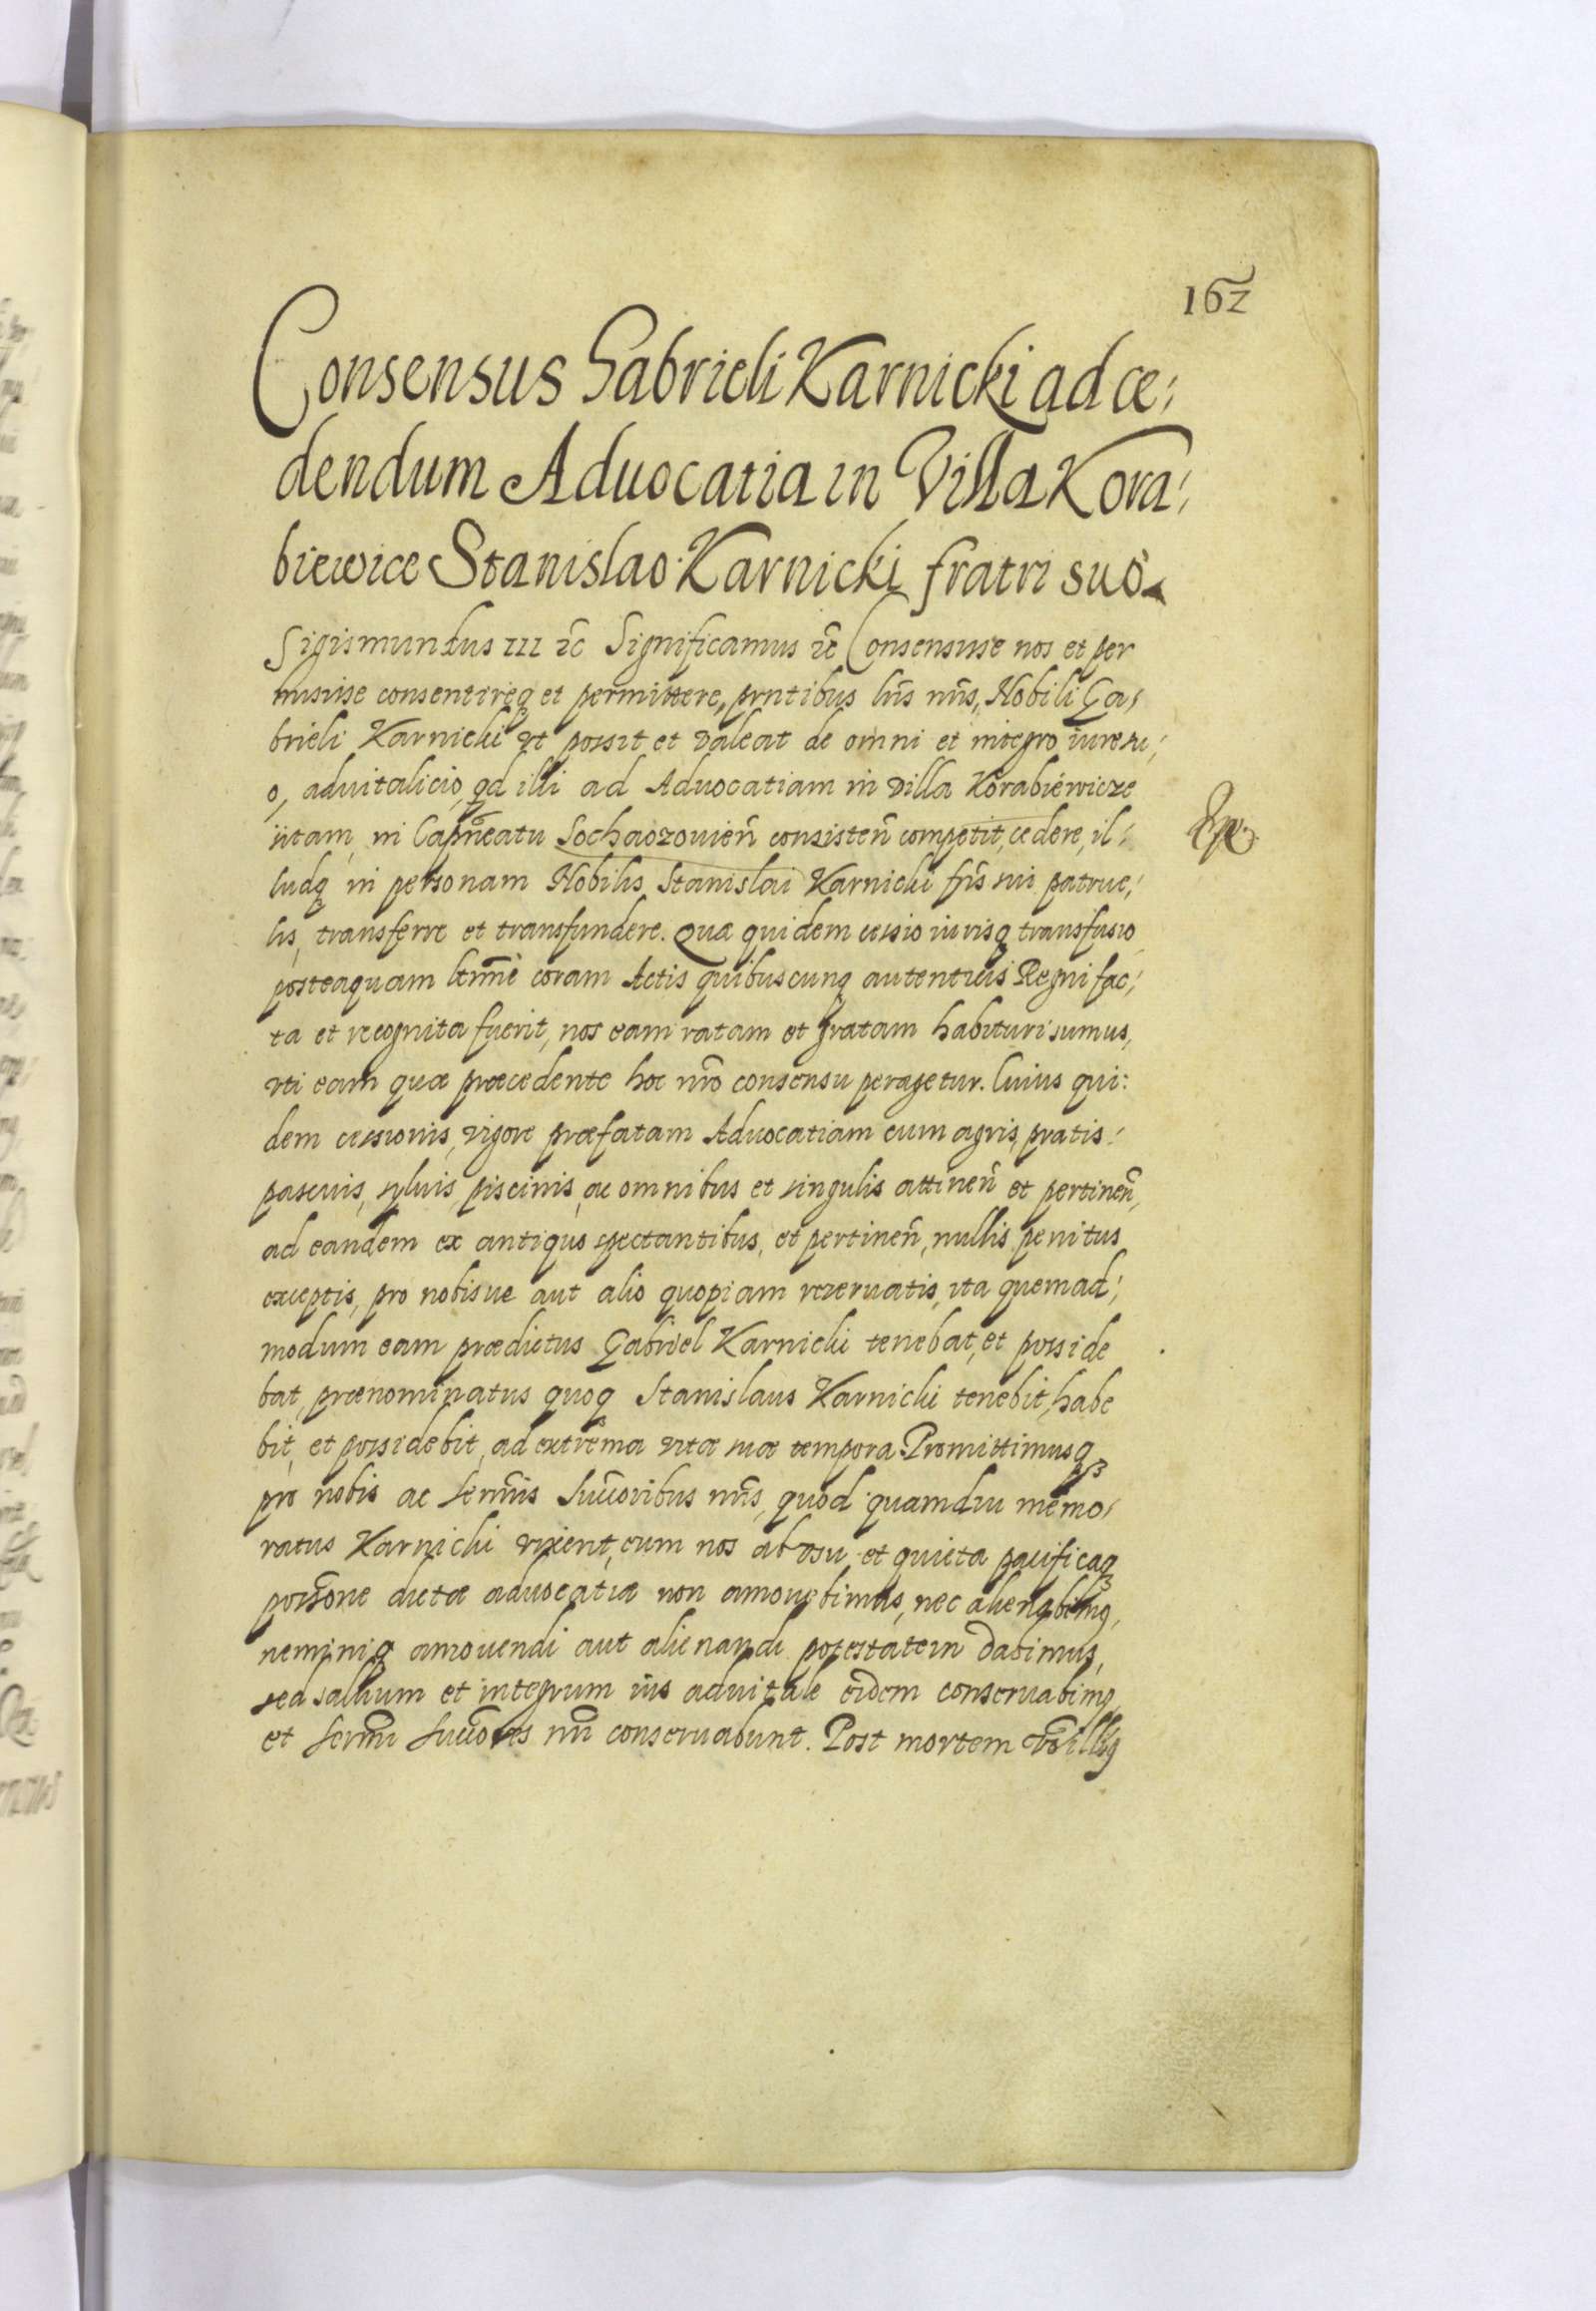 162
Consensus Gabrieli Karnicki ad ce:
dendum Aduocatia in Villa Kora:
biewice Stanislao Karnicki fratri suo.
Sigismundus III ꝛc̃ Significamus ꝛc̃ Consensisse nos et per
misisse consentireqꝫ et permittere, pr̃ntibus lr̃is nr̃is, Nobili Ga:
brieli Karnicki vt possit et valeat de omni et integro iure su:
o, aduitalicio, qd illi ad Aduocatiam in villa Korabiewicze
sitam, in Capñeatu Sochaczouien̄ consisten̄ competit, cedere, il:
ludqꝫ in personam Nobilis Stanislai Karnicki fr̃is sui patrue:
lis, transferre et transfundere. Quæ quidem cessio iurisqꝫ transfusio
posteaquam ltm̃e coram Actis quibuscunqꝫ autenticis Regni fac:
ta et recognita fuerit, nos eam ratam et gratam habituri sumus,
vti eam quæ præcedente hoc nr̃o consensu peragetur. Cuius qui:
dem cessionis, vigore præfatam Aduocatiam cum agris, pratis:
pascuis, syluis, piscinis, ac omnibus et singulis attinen̄ et pertinen̄,
ad eandem ex antiquo spectantibus, et pertinen̄, nullis penitus
exceptis, pro nobisue aut alio quopiam reseruatis, ita quemad:
modum eam prædictus Gabriel Karnicki tenebat, et posside
bat, prænominatus quoqꝫ Stanislaus Karnicki tenebit, habe
bit, et possidebit, ad extrema vitæ suæ tempora. Promittimusqꝫ
pro nobis ac Serm̃is Succ̃oribus nr̃is, quod quamdiu memo:
ratus Karnicki vixerit, eum nos ab vsu et quieta pacificaqꝫ
poss̃one dictæ aduocatiæ non amouebimus, nec alienabimꝰ,
neminiqꝫ amouendi aut alienandi potestatem dabimus,
sed saluum et integrum ius aduitale eidem conseruabimꝰ,
et Serm̃i Succ̃ores nr̃i conseruabunt. Post mortem vero illiꝰ